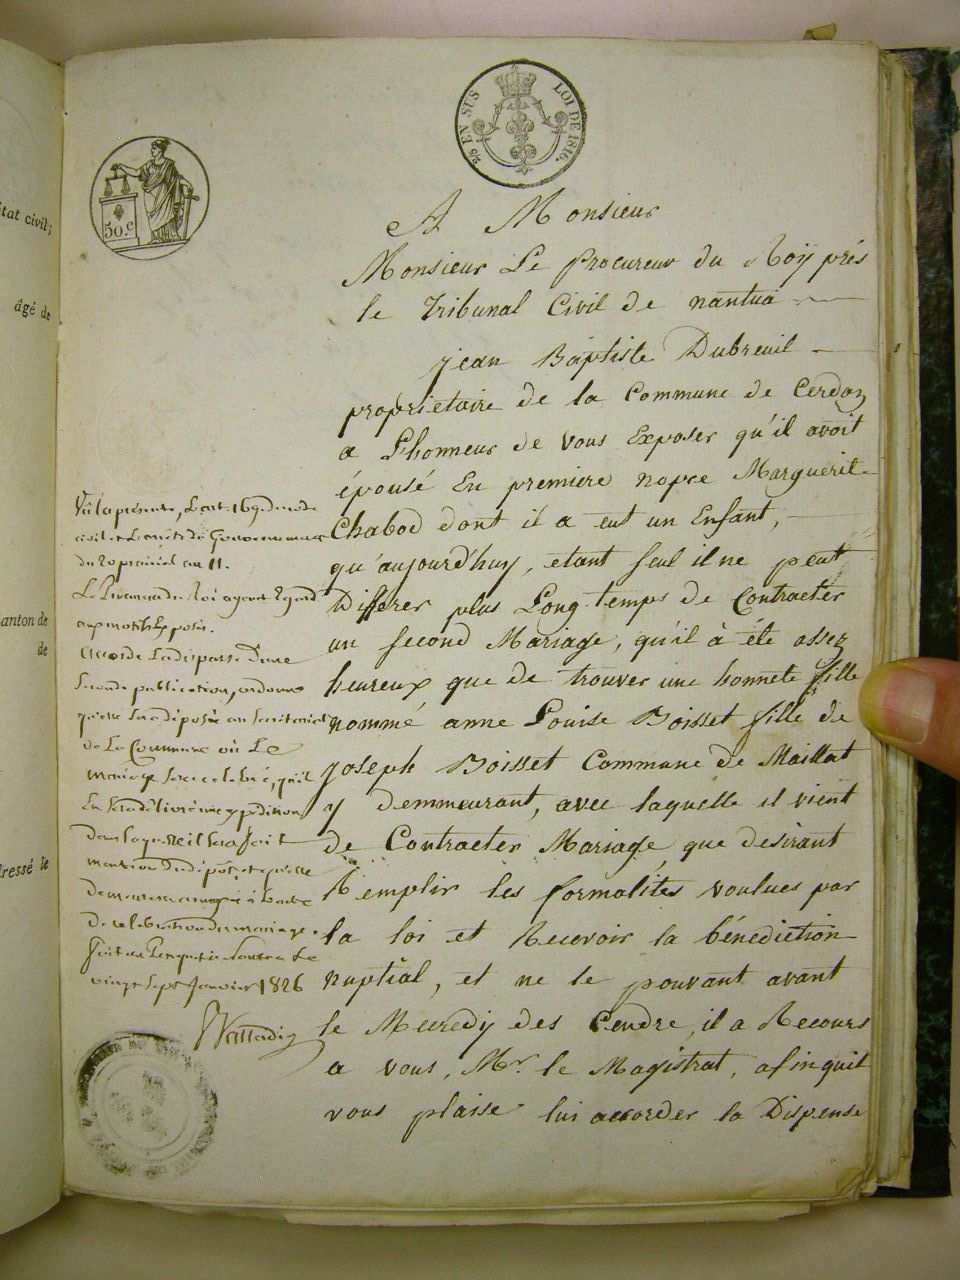 25 EN SUS LOI DE 1816.
50.c
état civil;
âgé de
canton de
de
dressé le
A Monsieur
Monsieur Le Procureur du Roÿ prés
le Tribunal Civil de nantua
jean Baptiste Dubreuil
proprietaire de la Commune de Cerdon
a L'honneur de vous Exposer qu'il avoit
épousé En premiere nopce Marguerite
Chabod dont il a eut un Enfant,
qu'aujourd'huy, etant seul il ne peut
Differer plus Long-temps de Contracter
un second Mariage, qu'il à éte assez
heureux que de trouver une honnete fille
nommé anne Louise Boisset fille de
Joseph Boisset Commune de Maillat
y demmeurant, avec laquelle il vient
de Contracter Mariage, que desirant
Remplir les formalités voulues par
la loi et Recevoir la bénediction
nuptial, et ne le pouvant avant
le Mecredÿ des Cendre, il a Recours
a vous, Mr. le Magistrat, afin quil
vous plaise lui accorder la Dispense
Vu la présente, L'art. 169 du code
civil et L'arrêté du Gouvernement
du 20 prairial an 11.
Le Procureur du Roi ayant Egard
aux motifs Exposés.
accorde La dispense d'une
seconde publication, ordonne
qu'elle sera déposée au secretariat
de La Commune où Le
mariage sera celebré, qu'il
En sera délivré une expedition
dans laquelle il sera fait
mention du dépôt, et qu'elle
demeurera annexée à l'acte
de celebration du mariage.
fait au Parquet à Nantua Le
vingt sept Janvier 1826